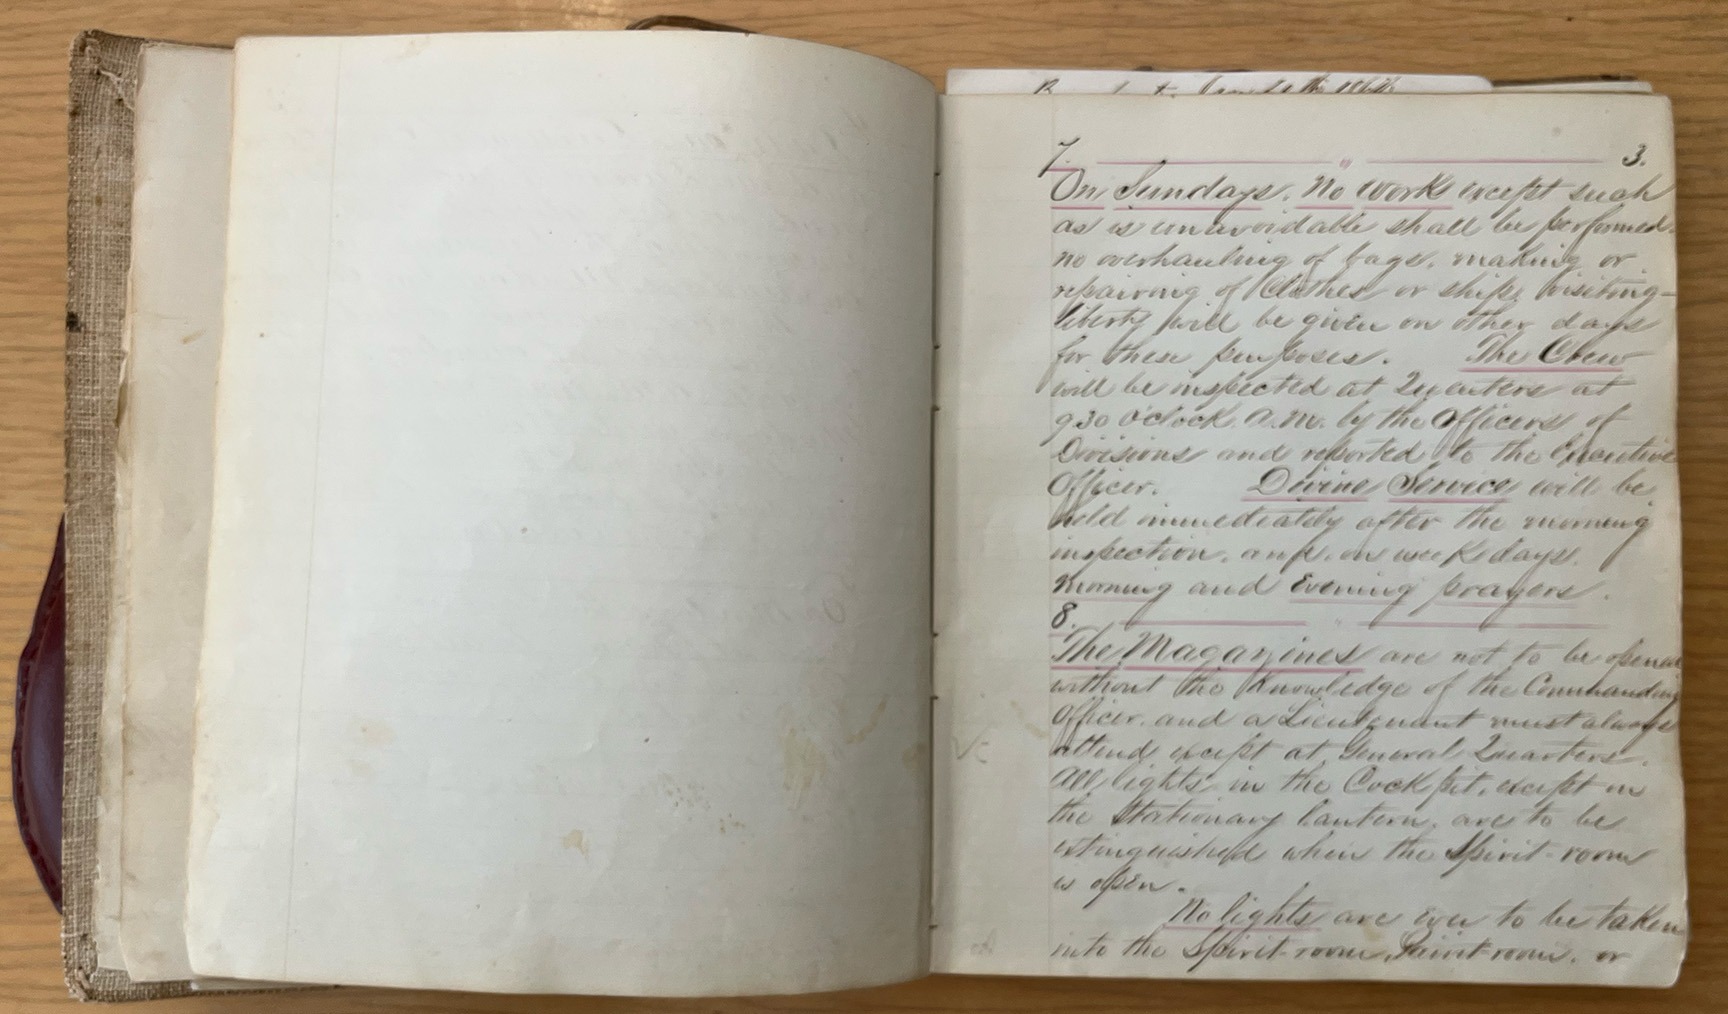 7. 3.
On Sundays. No work except such
as is unavoidable shall be performed.
no overhauling of bags, making or
repairing of Clothes or ship visiting-
liberty will be given on other days
for these purposes. The Crew
will be inspected at Quarters at
9 30 o'clock a.m. by the Officers of
Divisions and reported to the Executive
Officer. Divine Service will be
held immediately after the morning
inspection, and, on week days,
morning and evening prayers.
8.
The Magazines are not to be opened
without the Knowledge of the Commanding
Officer, and a Lieutenant must always
attend except at General Quarters.
All lights in the Cockpit, except in
the Stationary lantern, are to be
extinguished when the Spirit-room
is open.
No lights are ever to be taken
into the Spirit-room, Paint room, or